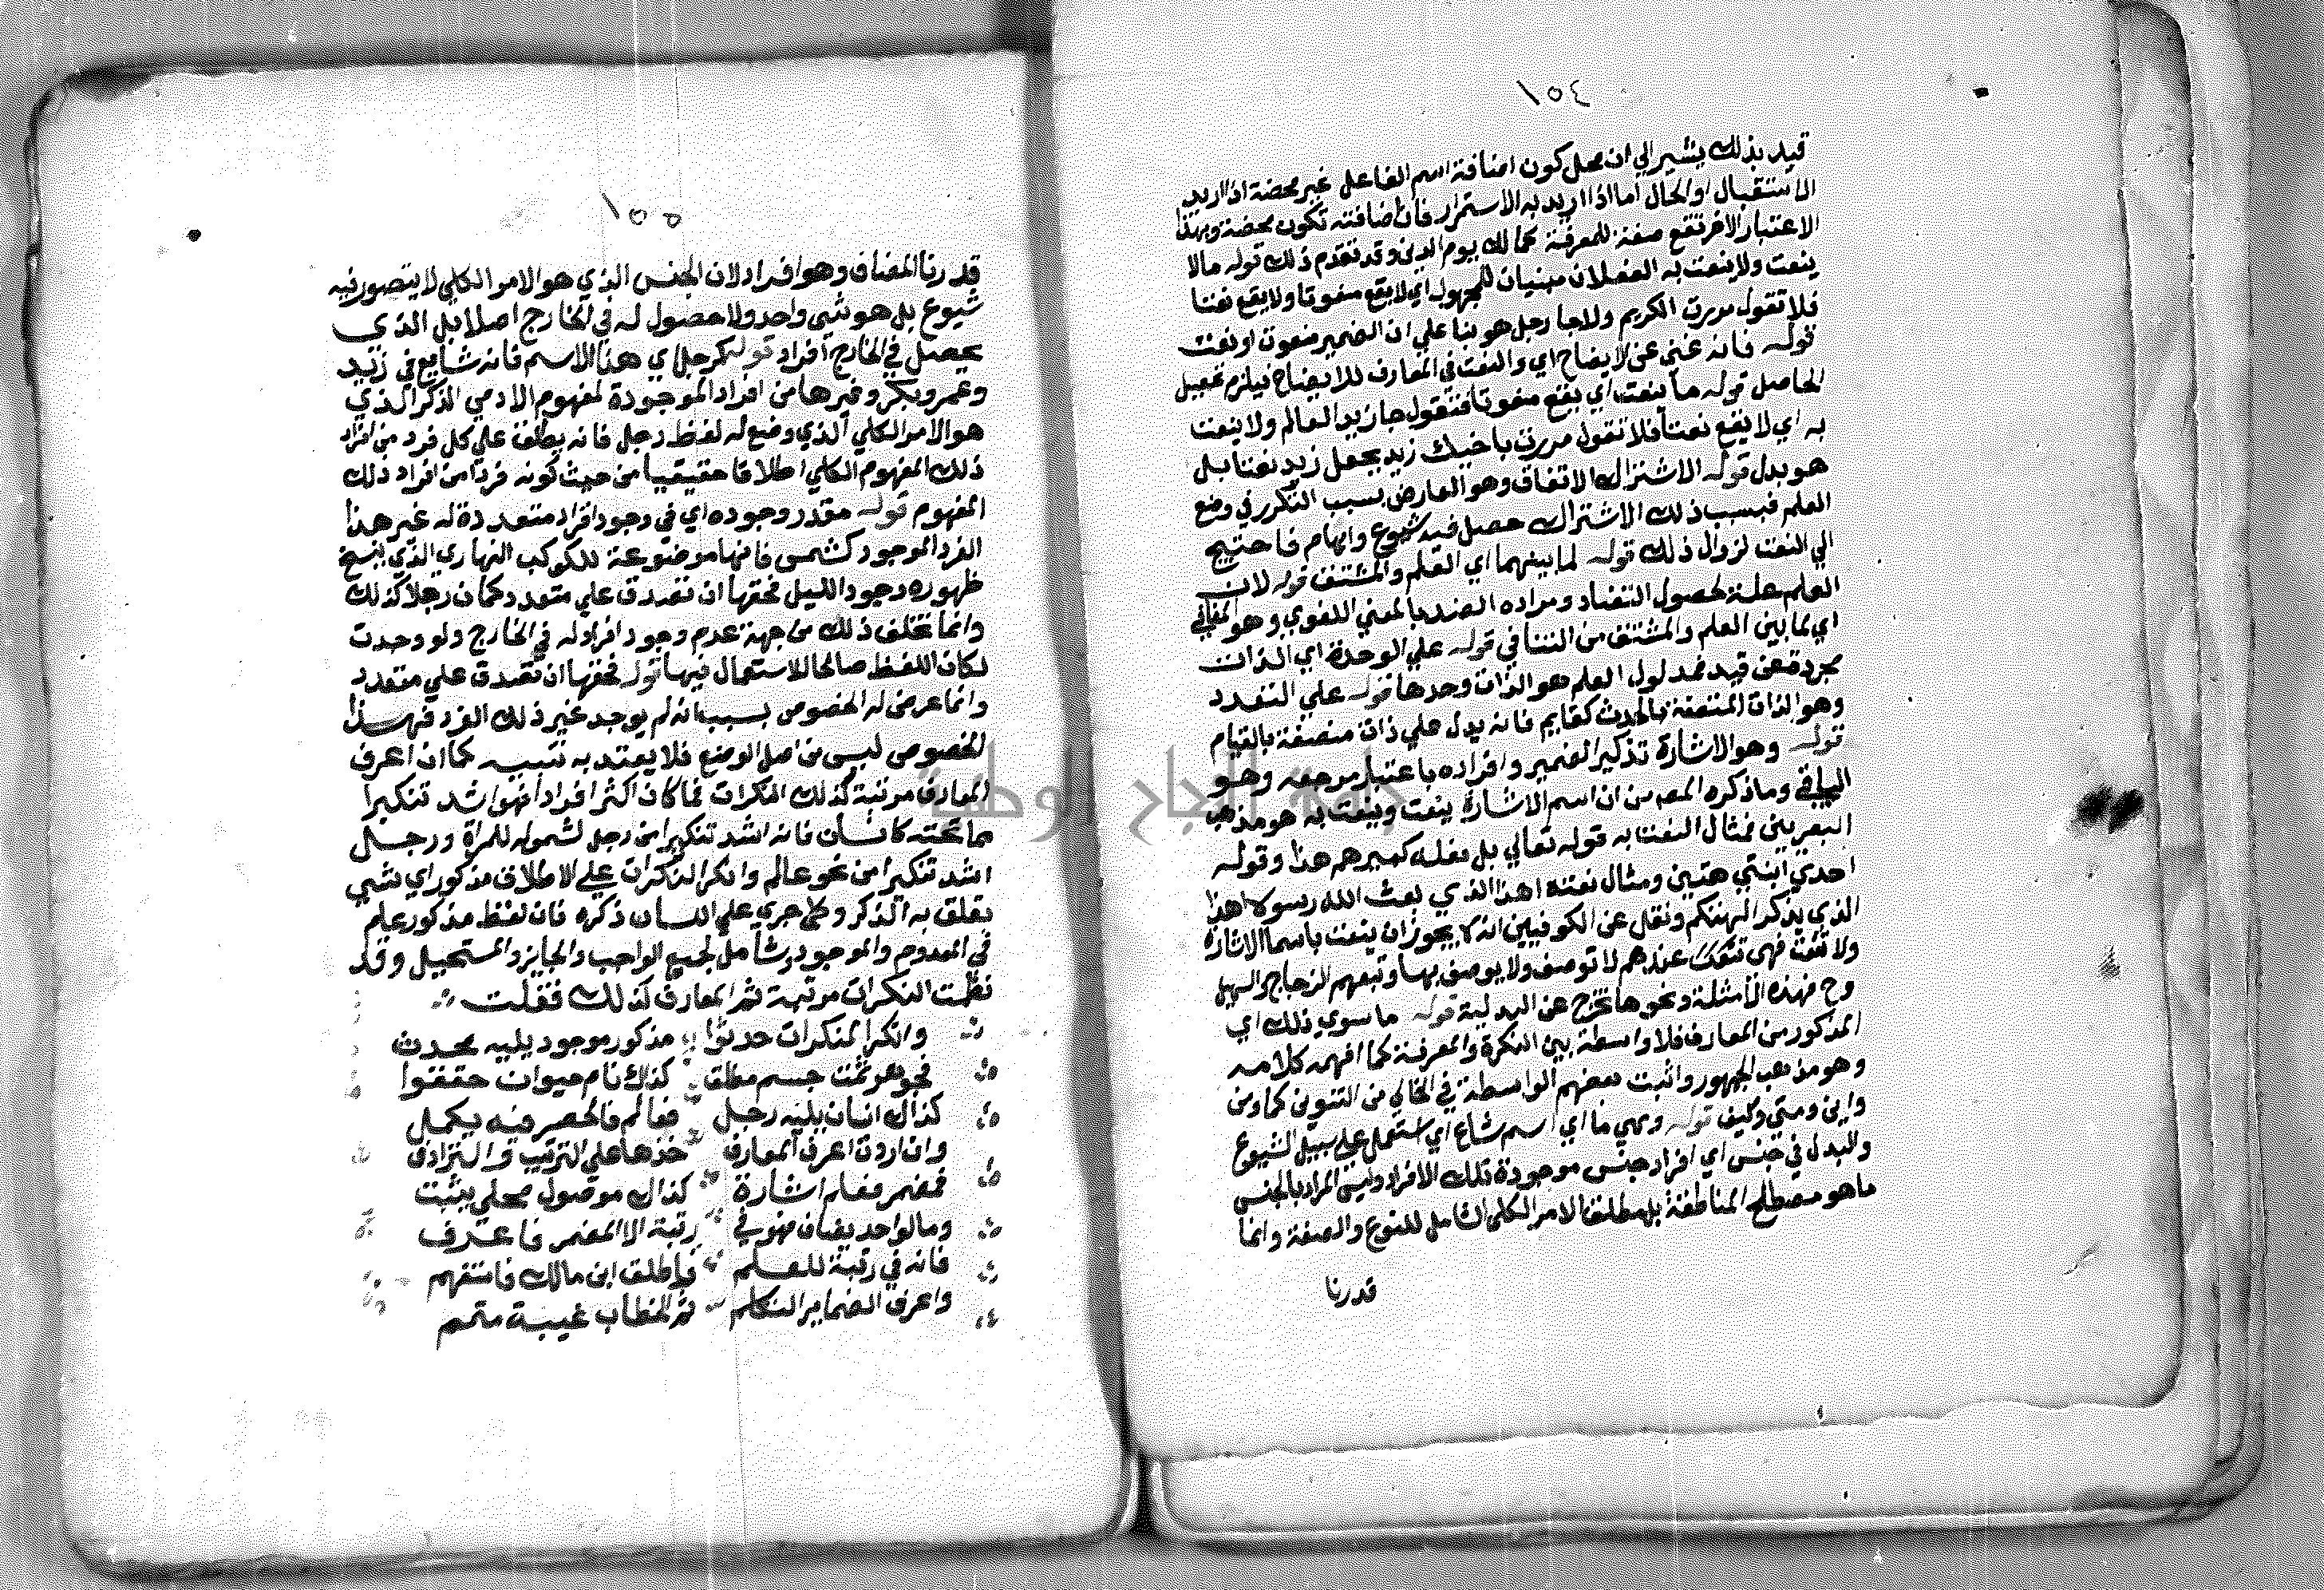 ١٥٤
قيد بذلك يشير الي ان محل كون اضافة اسم الفاعل غير محضة اذا اريد
الاستقبال او الحال اما اذا اريد به الاستمرار فان اضافته تكون محضة وبهذا
الاعتبار الاخر تقع صفة للمعرفة كمالك يوم الدين وقد تقدم ذلك قوله مالا
ينعت ولا ينعت به الفعلان مبنيان للمجهول اي لا يقع منعوتا ولا يقع نعتا
فلا تقول مررت الكريم ولا جا رجل هو بنا علي ان الضمير منعوت او نعت
قوله فانه غني عن الايضاح اي والنعت في المعارف للايضاح فيلزم تحصيل
الحاصل قوله ما ينعت اي يقع منعوتا فتقول جا زيد العالم ولا ينعت
به اي لا يقع نعتا فلا تقول مررت باخيك زيد بجعل زيد نعتا بل
هو بدل قوله الاشتراك الاتفاق وهو العارض بسبب التكرر في وضع
العلم فبسبب ذلك الاشتراك حصل فيه شيوع وابهام فاحتيج
الي النعت لزوال ذلك قوله لما بينهما اي العلم والمشتق قوله لان
العلم علة لحصول التضاد ومراده الضد بالمعني اللغوي وهو المنافي
اي لما بين العلم والمشتق من التنافي قوله علي الوحدة اي الذات
مجردة عن قيد فمدلول العلم هو الذات وحدها قوله علي التعدد
وهو الذات المتصفة بالحدث كقايم فانه يدل علي ذات متصفة بالقيام
قوله وهو الاشارة تذكير الضمير وافراده باعتبار مرجعه وهو
الباقي وما ذكره المصـ من ان اسم الاشارة ينعت وينعت به هو مذهب
البصريين فمثال النعت به قوله تعالي بل فعله كبيرهم هذا وقوله
احدي ابنتي هتين ومثال نعته اهذا الذي بعث الله رسولا اهذا
الذي يذكر الهتكم ونقل عن الكوفيين انه لا يجوز ان ينعت باسما الاشارة
ولا تنعت فهي عندهم لا توصف ولا يوصف بها وتبعهم الزجاج والسهيلي
وح فهذه الامثلة ونحوها تخرج عن البدلية قوله ما سوي ذلك اي
المذكور من المعارف فلا واسطة بين النكرة والمعرفة كما افهمه كلامه
وهو مذهب الجمهور واثبت بعضهم الواسطة في الخالي من التنوين كما ومن
واين ومتي وكيف قوله وهي ما اي اسم شاع اي استعمل علي سبيل الشيوع
والبدل في جنس اي افراد جنس موجودة تلك الافراد وليس المراد بالجنس
ماهو مصطلح المناطقة بل مطلق الامر الكلي الشامل للنوع والصفة وانما
قدرنا
١٥٥
قدرنا المضاف وهو افراد لان الجنس الذي هو الامر الكلي لا يتصور فيه
شيوع بل هو شي واحد ولا حصول له في الخارج اصلا بل الذي
يحصل في الخارج افراد قوله كرجل اي هذا الاسم فانه شايع في زيد
وعمرو وبكر وغيرها من افراد الموجودة لمفهوم الادمي الذكر الذي
هو الامر الكلي الذي وضع له لفظ رجل فانه يطلق علي كل فرد من افراد
ذلك المفهوم الكلي اطلاقا حقيقيا من حيث كونه فردا من افراد ذلك
المفهوم قوله مقدر وجوده اي في وجود افراد متعددة له غير هذا
الفرد الموجود كشمس فانها موضوعة للكوكب النهاري الذي ينسخ
ظهوره وجود الليل فحقها ان تصدق علي متعدد كما ان رجلا كذلك
وانما تخلف ذلك من جهة عدم وجود افراد له في الخارج ولو وجدت
لكان اللفظ صالحا للاستعمال فيها قوله فحقها ان تصدق علي متعدد
وانما عرض له الخصوص بسبب انه لم يوجد غير ذلك الفرد فهذا
الخصوص ليس من اصل الوضع فلا يعتد به تنبيه كما ان اعرف
المعارف مرتبة كذلك النكرات فما كان اكثر افرادا فهو اشد تنكيرا
مما تحته كانسان فانه اشد تنكيرا من رجل لشموله للمراة ورجل
اشد تنكيرا من نحو عالم وانكر النكرات علي الاطلاق مذكور اي شي
تعلق به الذكر وجري علي اللسان ذكره فان لفظ مذكور علم
في المعدوم والموجود وشامل لجميع الواجب والجايز والمستحيل وقد
نظمت النكرات مرتبة ثم المعارف كذلك فقلت
وانكر المنكرات حدثوا مذكور موجود يليه محدث
فجوهر ثمت جسم مطلق كذاك نام حيوان حققوا
كذاك انسان يليه رجل فعالم فالحصر فيه يكمل
وان اردت اعرف المعارف خذها علي الترتيب والترادف
فمضمر فعلم اشارة كذاك موصول محلي يثبت
وما لواحد يضاف فهو في رتبة الا المضمر فاعترف
فانه في رتبة للعلم واطلق ابن مالك فاستفهم
واعرف الضماير التكلم ثم الخطاب غيبة متمم
جامعة النجاح الوطنية